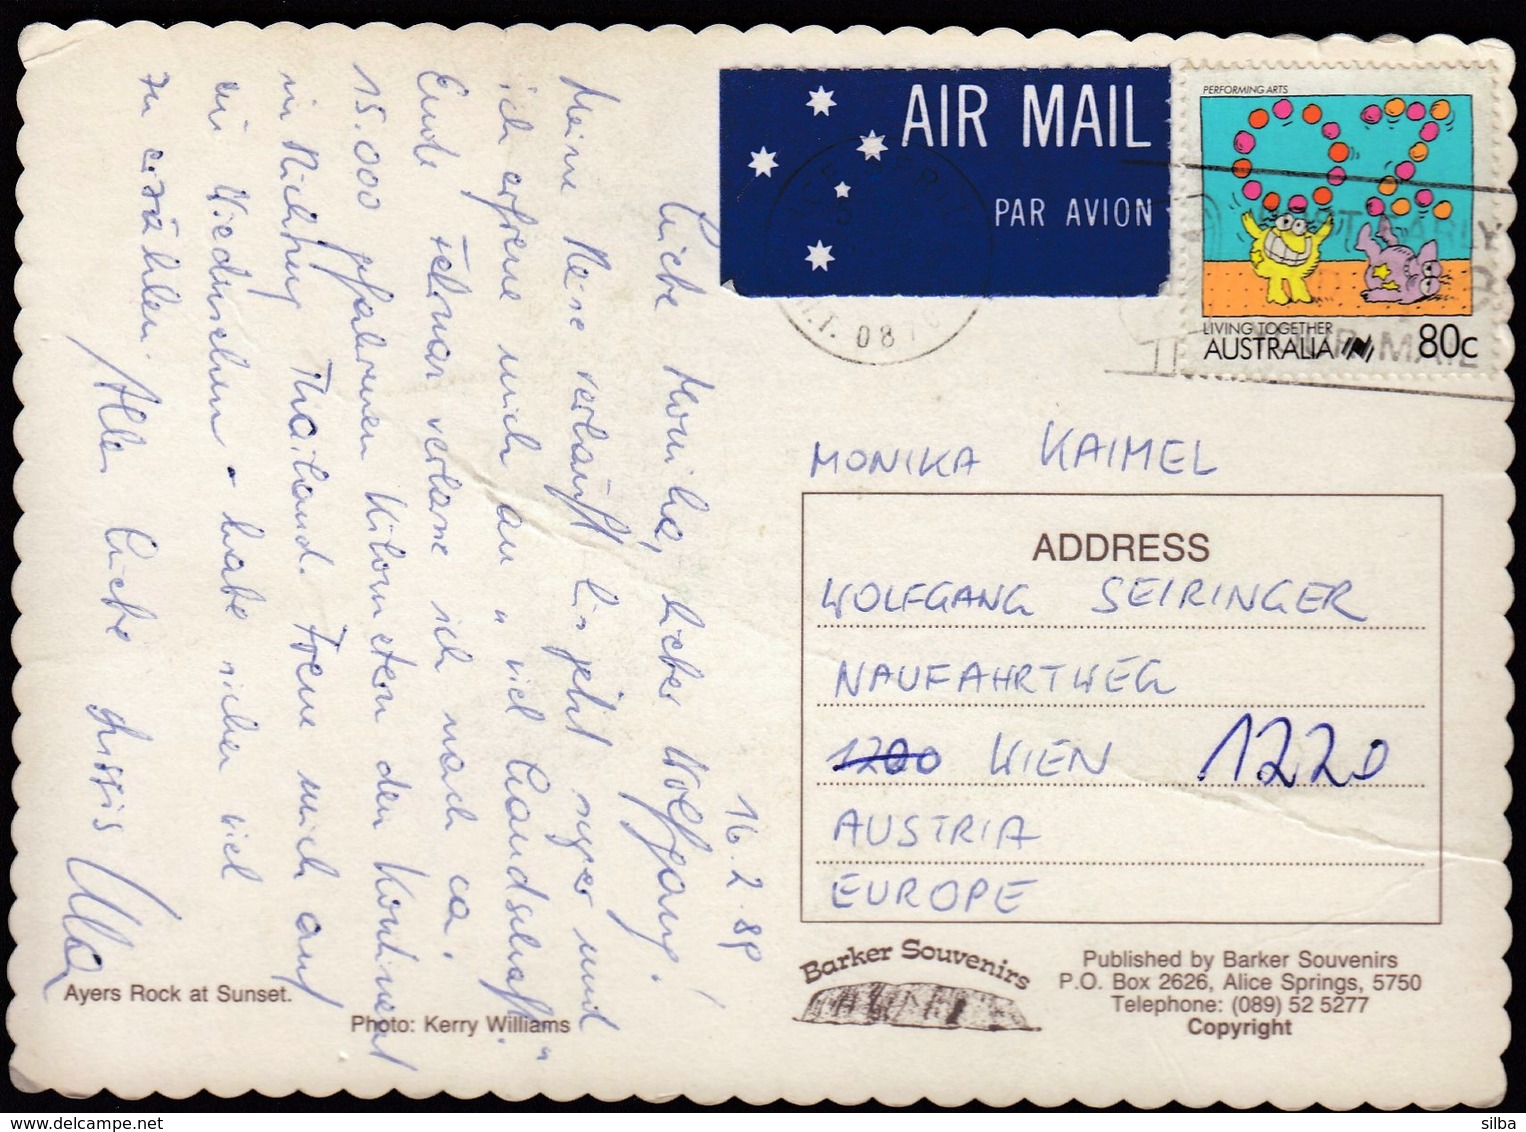 AIR MAIL
PAR AVION
PERFORMING ARTS
LIVING TOGETHER
AUSTRALIA 80c
N.T. 0870
16.2.89
Liebe Monika, lieber Wolfgang!
Meine Reise verläuft bis jetzt super und
ich erfreue mich an "viel Landschaft".
Ende Februar verlasse ich nach ca.
15.000 gefahrenen Kilometern den Kontinent
in Richtung Thailand. Freue mich auf
ein Wiedersehen - habe sicher viel
zu erzählen. Alles Liebe
MONIKA KAIMEL
ADDRESS
WOLFGANG SEIRINGER
NAUFAHRTWEG
1200 WIEN 1220
AUSTRIA
EUROPE
Ayers Rock at Sunset.
Photo: Kerry Williams
Barker Souvenirs
Published by Barker Souvenirs
P.O. Box 2626, Alice Springs, 5750
Telephone: (089) 52 5277
Copyright
delcampe.net
silba